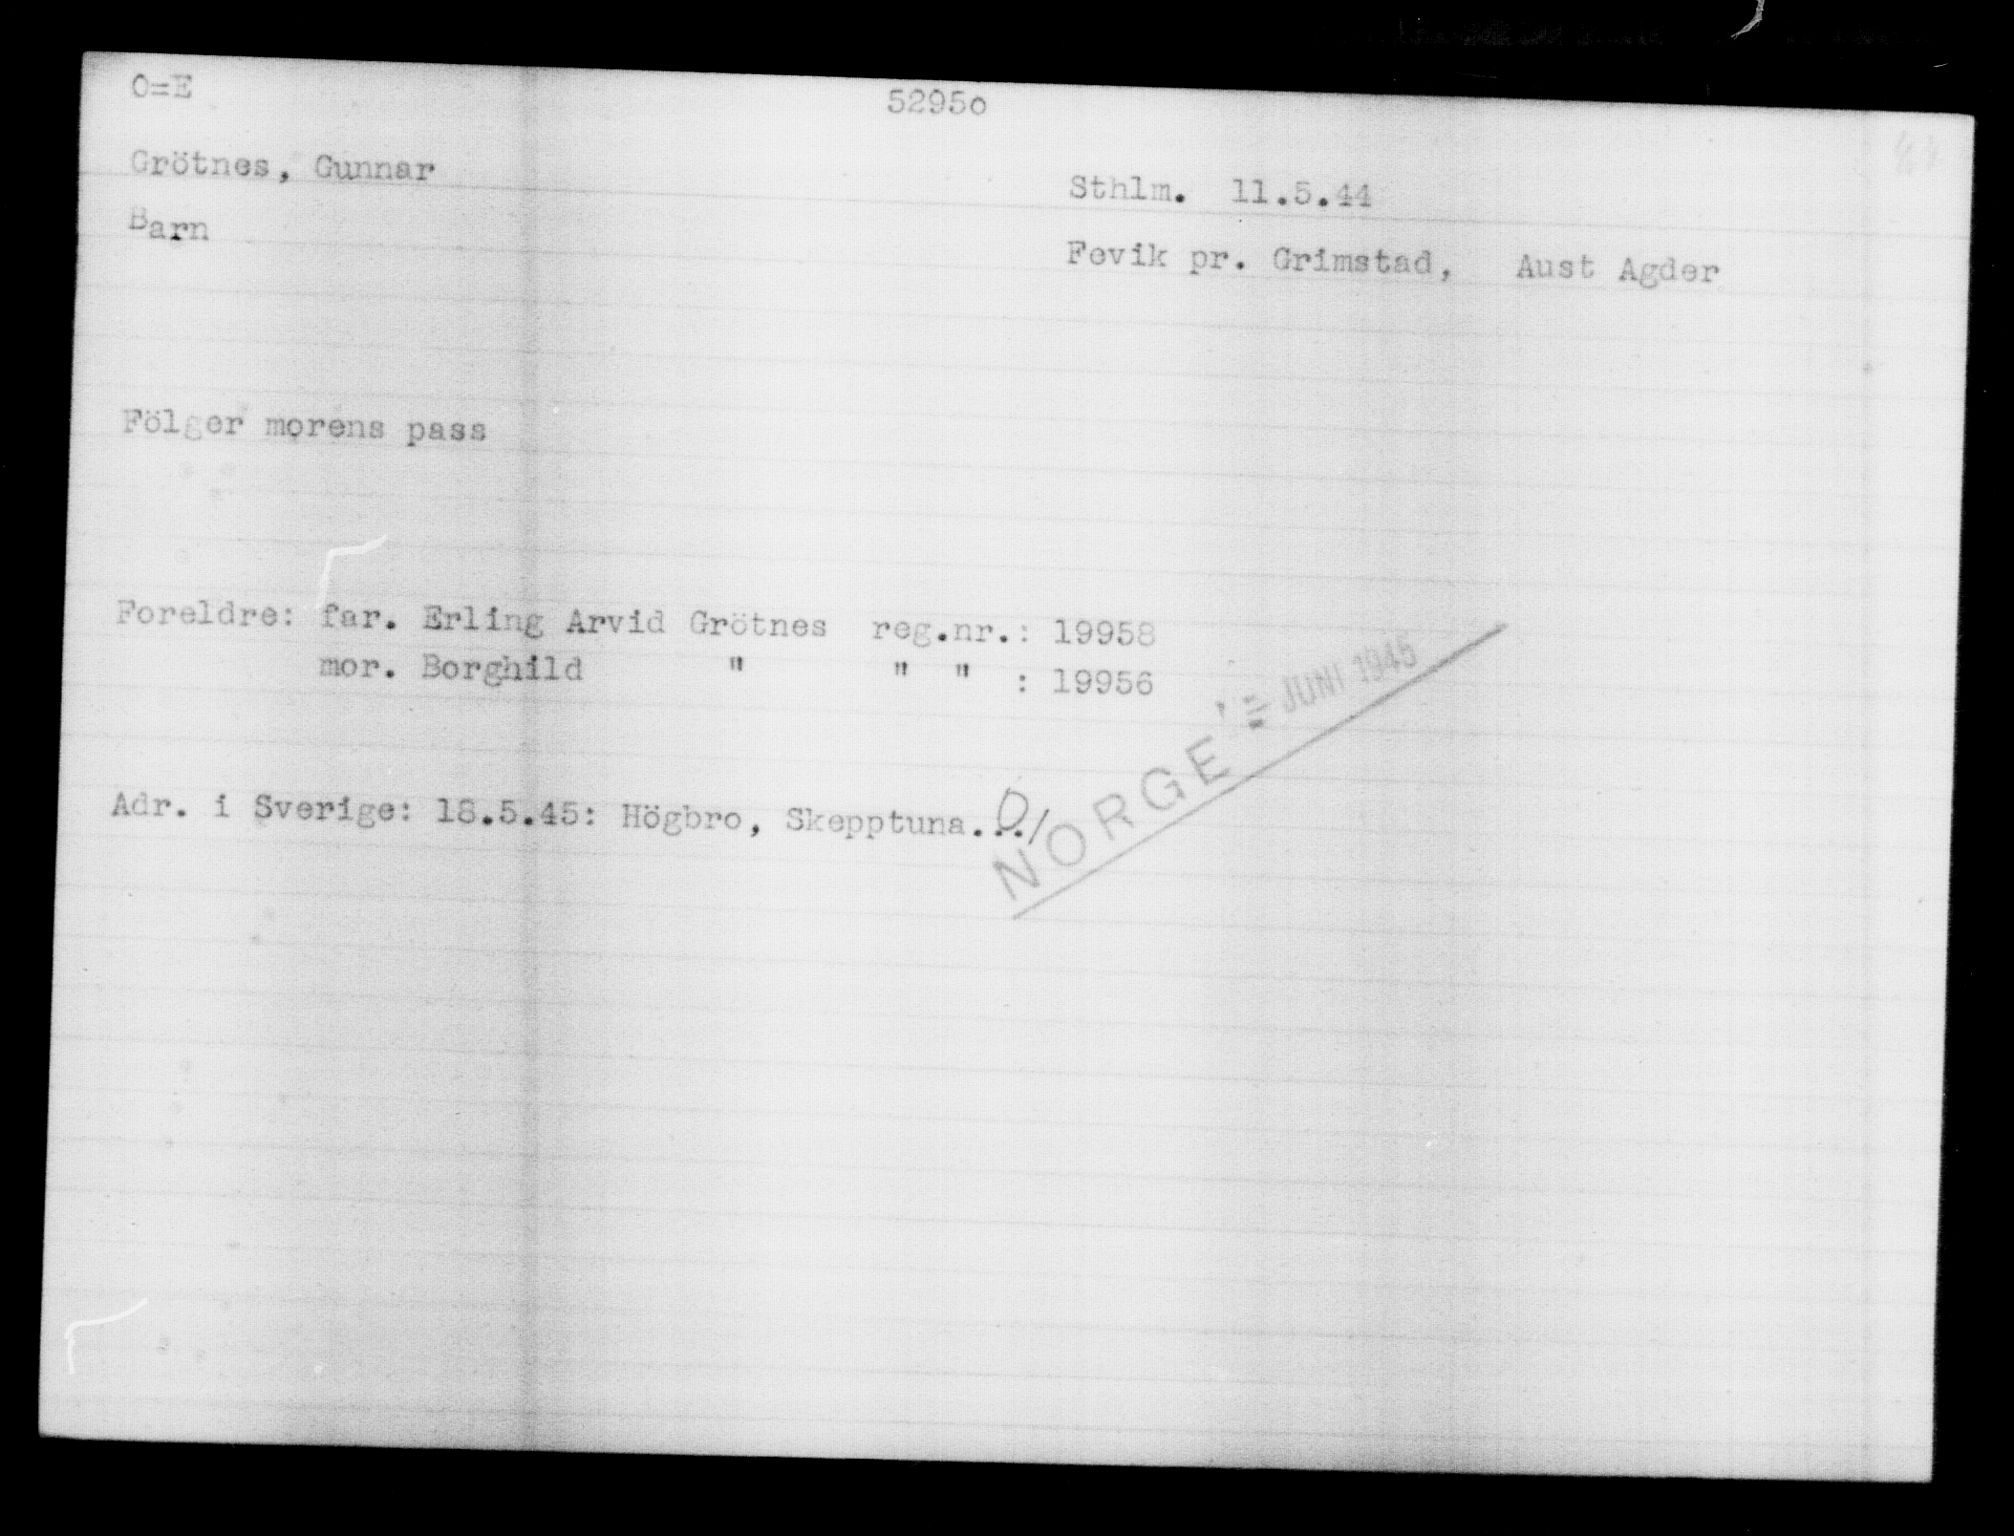 O=E
5295o
Grötnes, Gunnar
Sthlm. 11.5.44
Barn
Fevik pr. Grimstad, Aust Agder
Fölger morens pass
Foreldre: far. Erling Arvid Grötnes reg.nr.: 19958
mor. Borghild " " " : 19956
JUNI 1945
NORGE
Adr. i Sverige: 18.5.45: Högbro, Skepptuna...